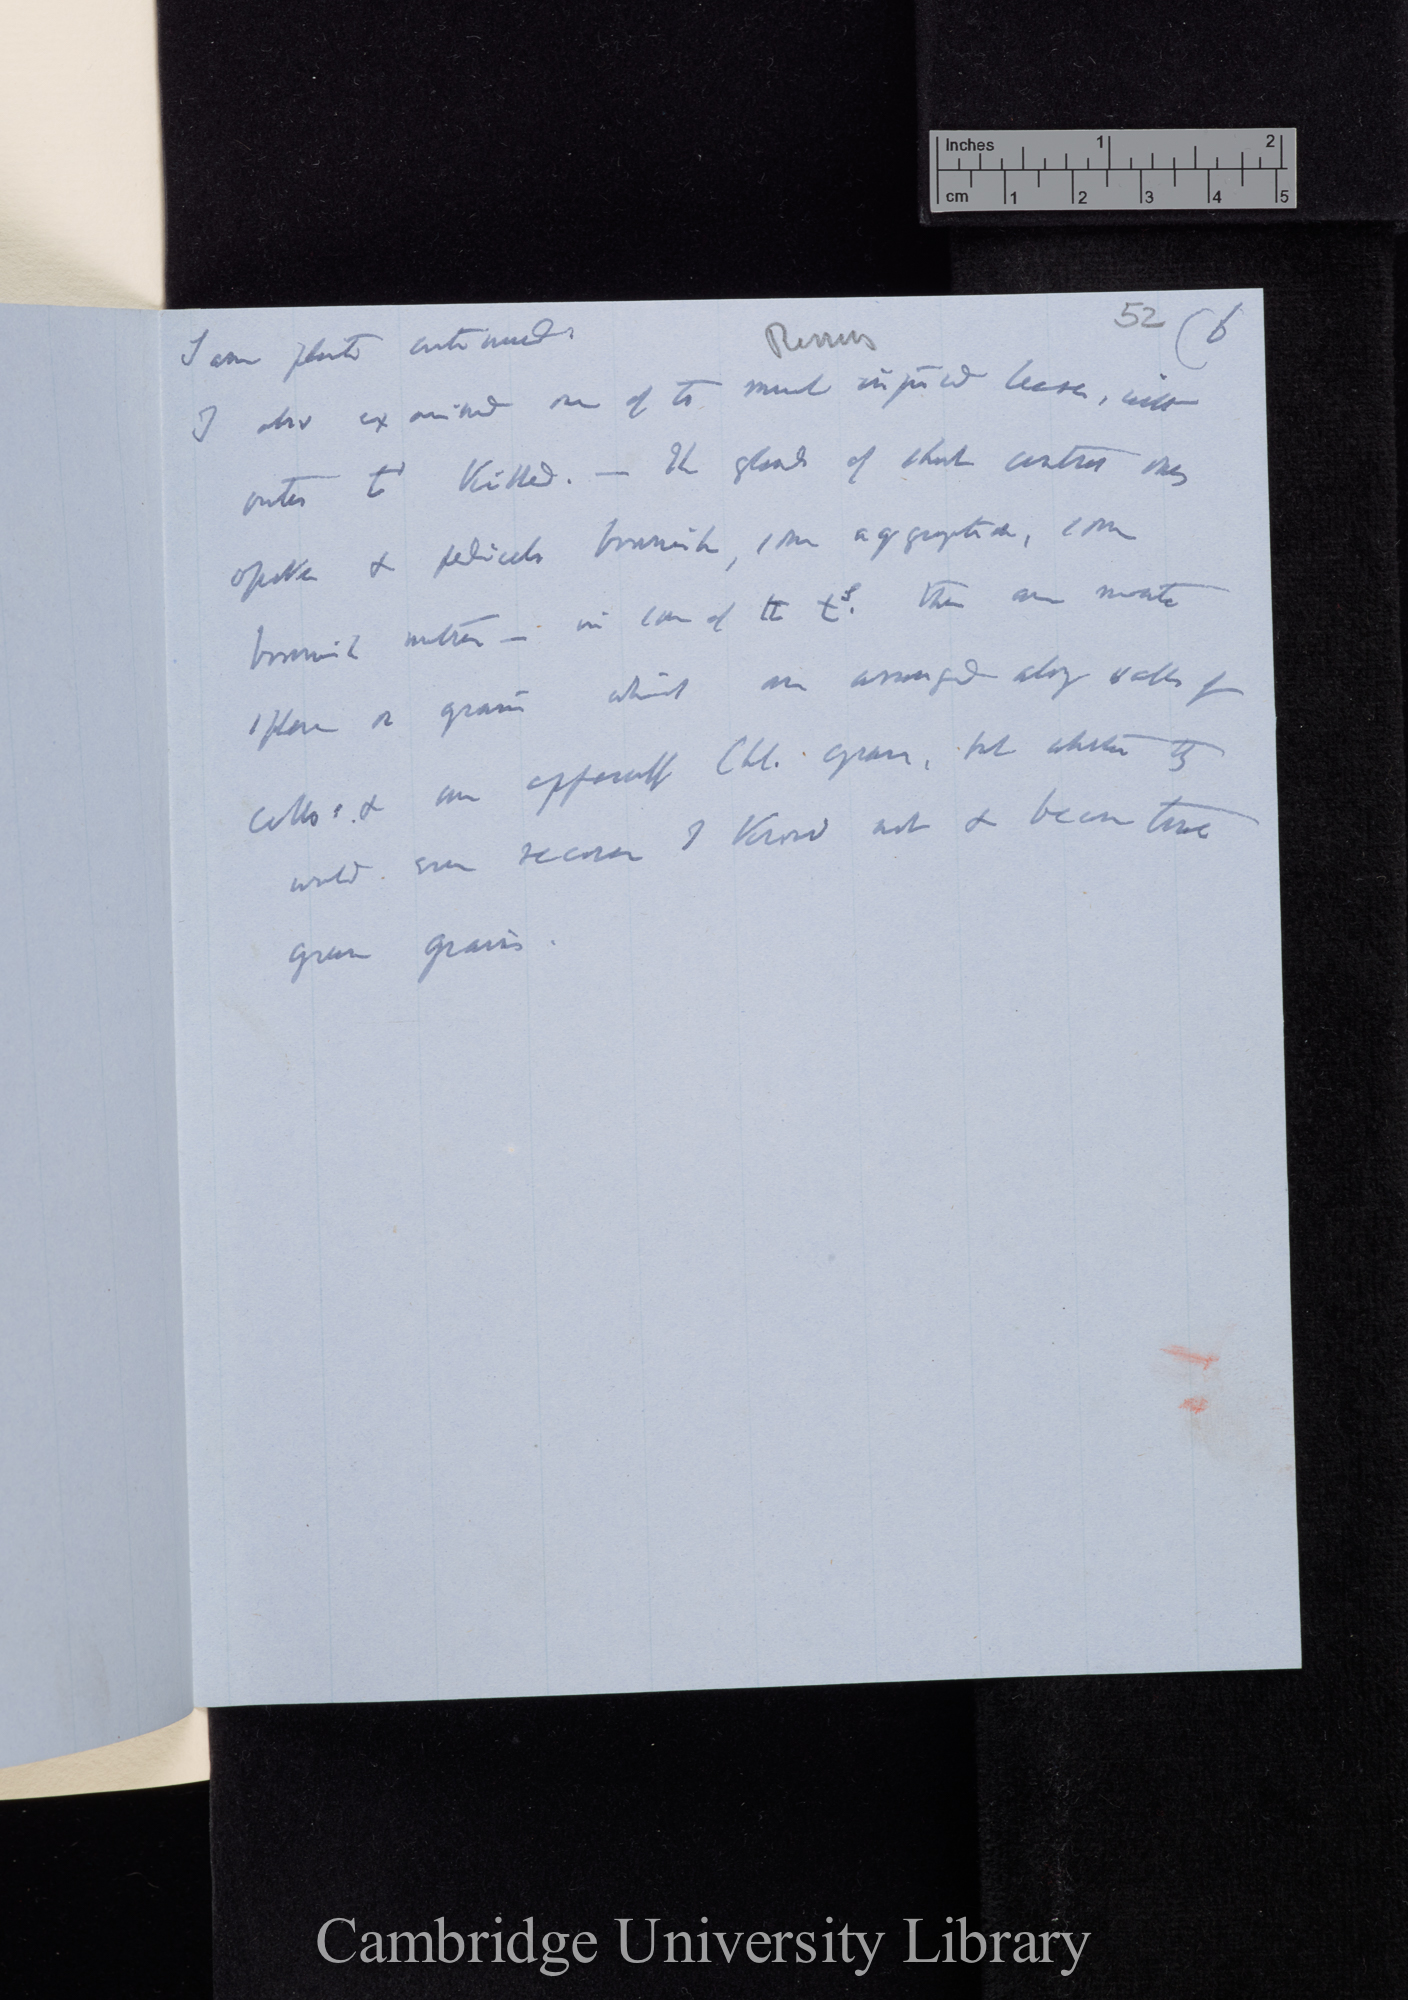 Inches 1 2
cm 1 2 3 4 5
52 (6
Same plant continued.
I also examined one of the much injured leaves, with
outer t killed. — The glands of short central ones
opake & pedicels brownish, some aggregation, some
brownish matter — in some of the ts. there are minute
spheres or grains which are arranged along walls of
cells. & are apparently Chl. grains, but whether they
would ever recover I know not & become true
green grains.
Cambridge University Library